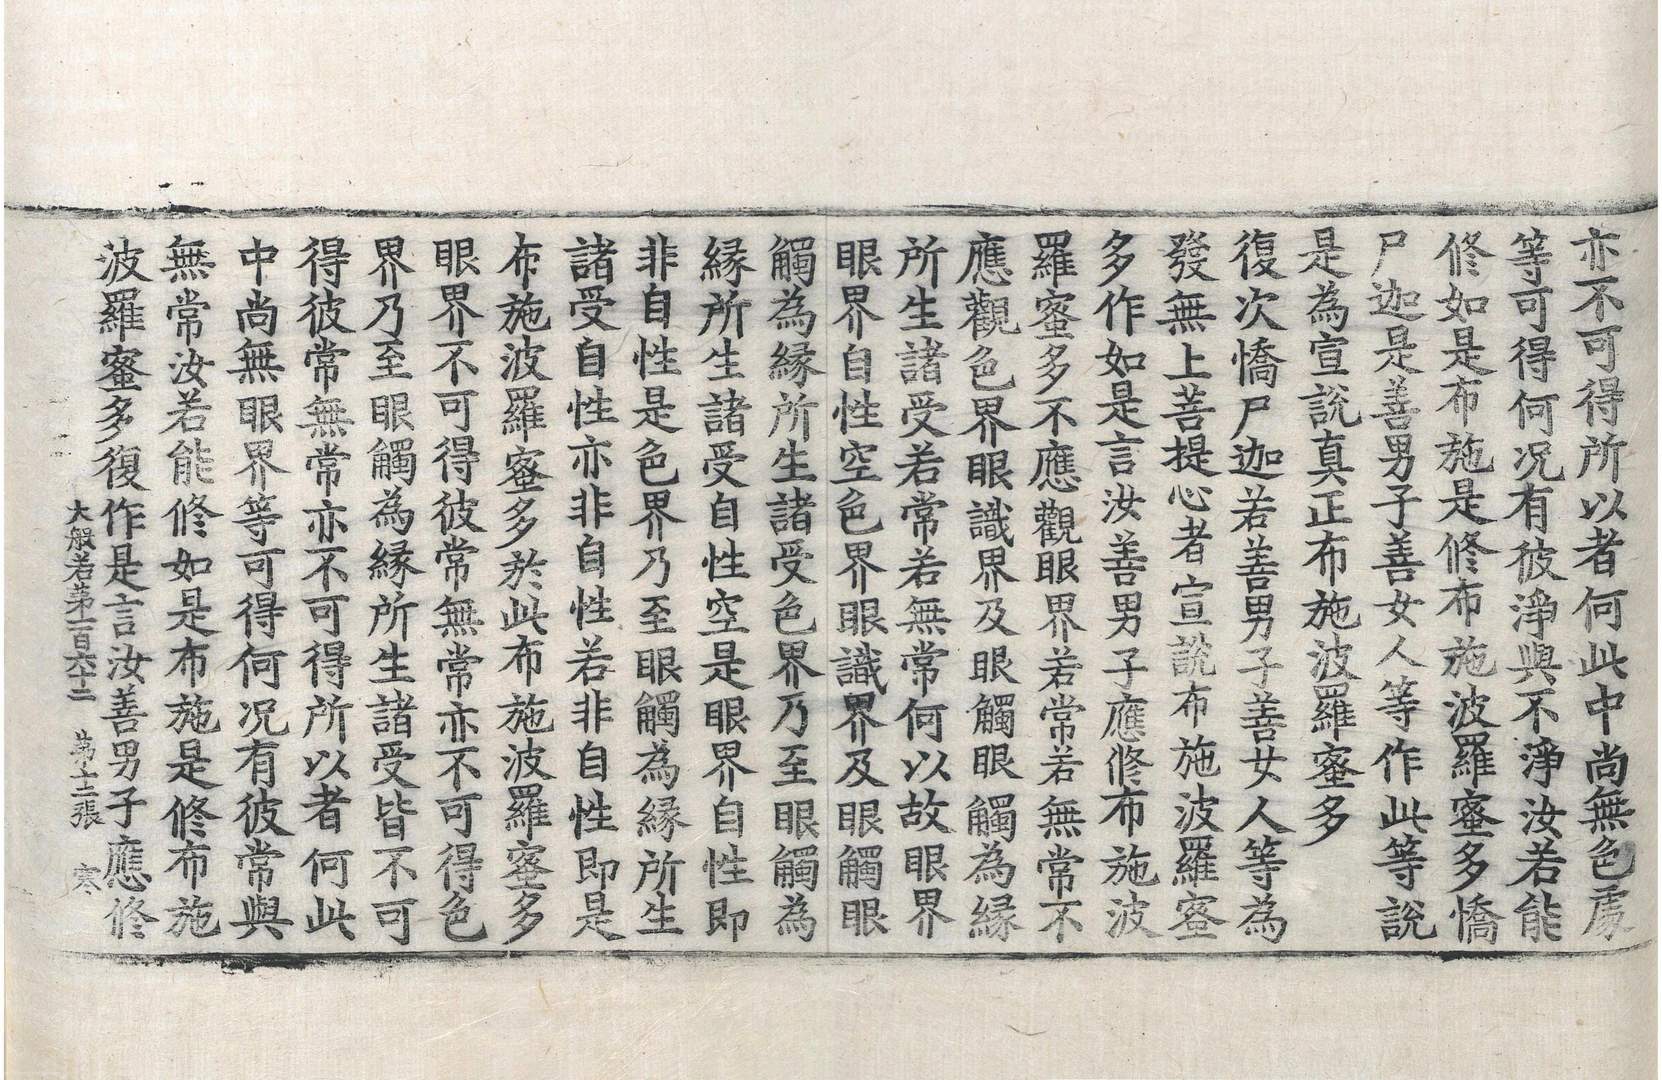 亦不可得所以者何此中尚無色處
等可得何况有彼淨與不淨汝若能
修如是布施是修布施波羅蜜多憍
尸迦是善男子善女人等作此等說
是為宣說真正布施波羅蜜多
復次憍尸迦若善男子善女人等為
發無上菩提心者宣說布施波羅蜜
多作如是言汝善男子應修布施波
羅蜜多不應觀眼界若常若無常不
應觀色界眼識界及眼觸眼觸為緣
所生諸受若常若無常何以故眼界
眼界自性空色界眼識界及眼觸眼
觸為緣所生諸受色界乃至眼觸為
緣所生諸受自性空是眼界自性即
非自性是色界乃至眼觸為緣所生
諸受自性亦非自性若非自性即是
布施波羅蜜多於此布施波羅蜜多
眼界不可得彼常無常亦不可得色
界乃至眼觸為緣所生諸受皆不可
得彼常無常亦不可得所以者何此
中尚無眼界等可得何况有彼常與
無常汝若能修如是布施是修布施
波羅蜜多復作是言汝善男子應修
大般若第一百六十二 第十二張 寒